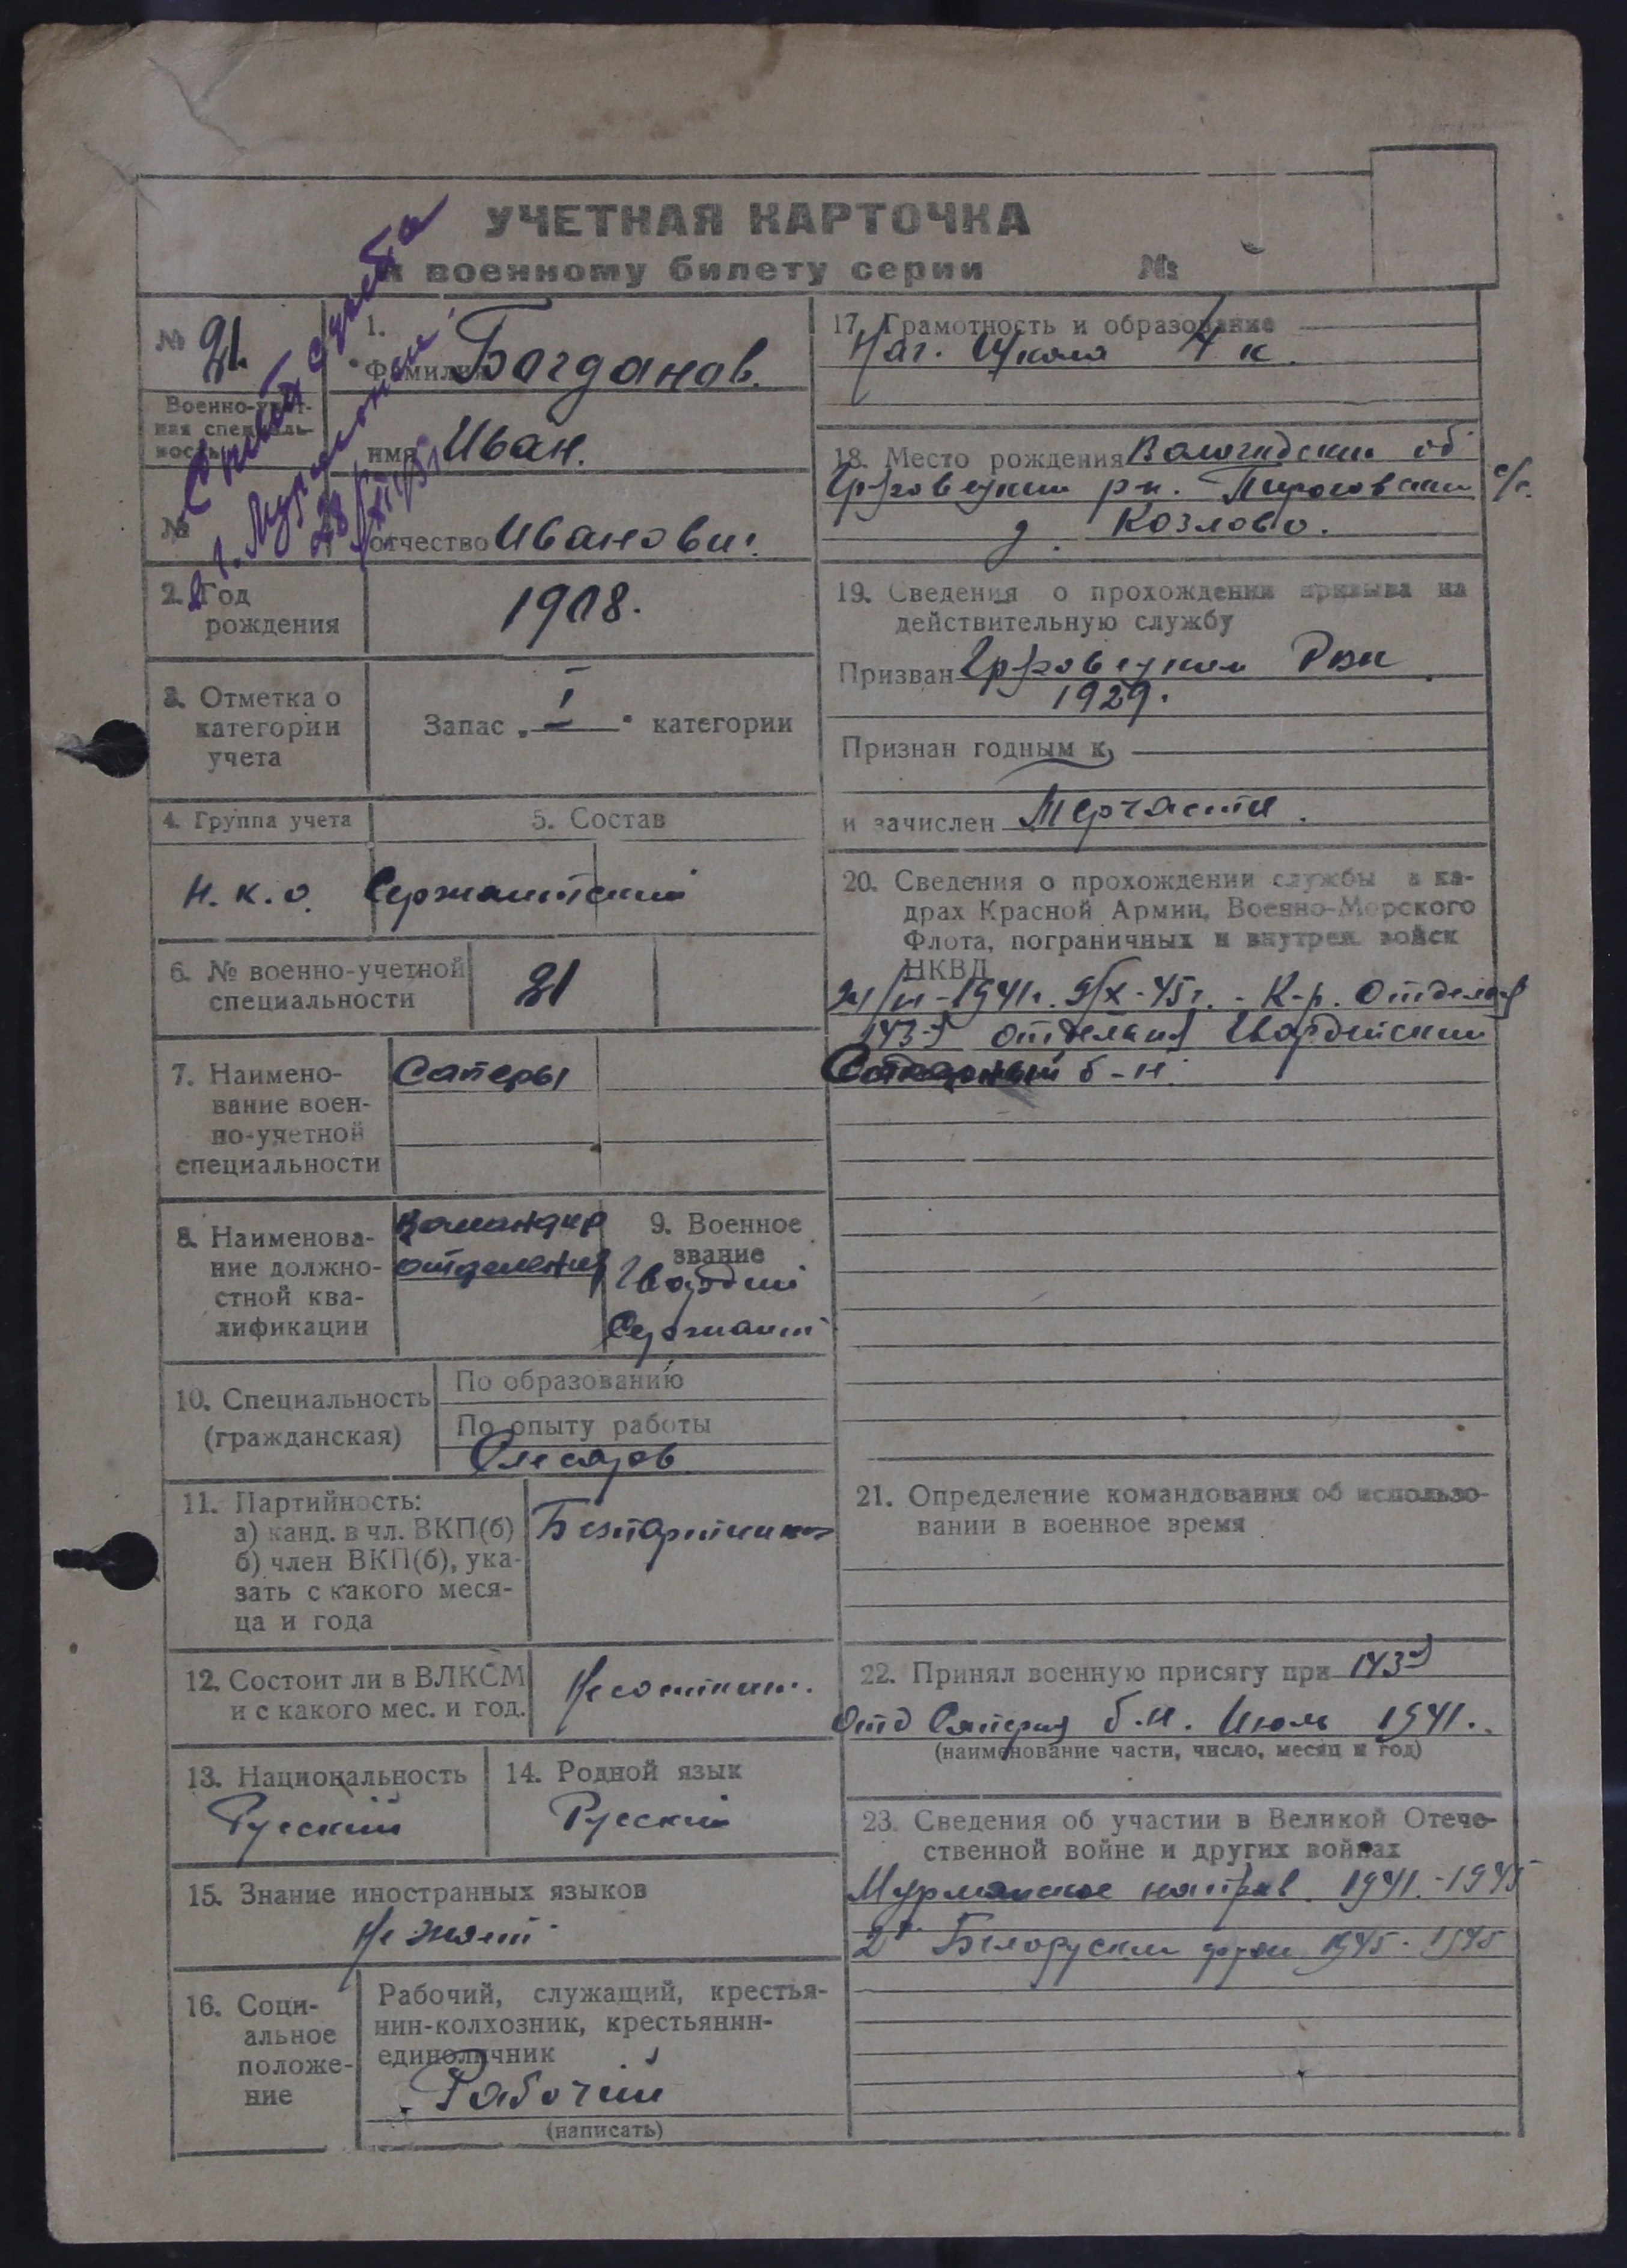 УЧЕТНАЯ КАРТОЧКА
к военному билету серии №
№ 21
Военно-учет-
ная специаль-
ность
№
Снят с учета
в г. Мурманске
28/XI
1.
Фамилия Богданов.
имя Иван.
отчество Иванович.
2. Год
рождения
1908.
3. Отметка о
категории
учета
Запас „I“ категории
4. Группа учета
5. Состав
Н. К. О. Сержантский
6. № военно-учетной
специальности
21
7. Наимено-
вание воен-
но-учетной
специальности
Саперы
8. Наименова-
ние должно-
стной ква-
лификации
Командир
отделения
9. Военное
звание
Гвардии
Сержант
10. Специальность
(гражданская)
По образованию
По опыту работы
Слесарь
11. Партийность:
а) канд. в чл. ВКП(б)
б) член ВКП(б), ука-
зать с какого меся-
ца и года
12. Состоит ли в ВЛКСМ
и с какого мес. и год.
Не состоит.
13. Национальность
Русский
14. Родной язык
Русский
15. Знание иностранных языков
Не знает
16. Соци-
альное
положе-
ние
Рабочий, служащий, крестья-
нин-колхозник, крестьянин-
единоличник
Рабочий
(написать)
17. Грамотность и образование
Нач. Школа 4 к.
18. Место рождения Вологодская об
Грязовецкий р-н. с/с.
д. Козлово.
19. Сведения о прохождении призыва на
действительную службу
Призван Грязовецким РВК
1929.
Признан годным к
и зачислен Терчасти.
20. Сведения о прохождении службы в ка-
драх Красной Армии, Военно-Морского
Флота, пограничных и внутрен. войск
НКВД
1941г. 9/X-45г. - К-р. Отделен
143-й отдельный Гвардейский
б-н.
21. Определение командования об использо-
вании в военное время
22. Принял военную присягу при 143-й
Отд Саперн б.н. Июль 1941.
(наименование части, число, месяц и год)
23. Сведения об участии в Великой Отече-
ственной войне и других войнах
Мурманское направ. 1941.-1945
2й Белоруский фрон 1945-1945